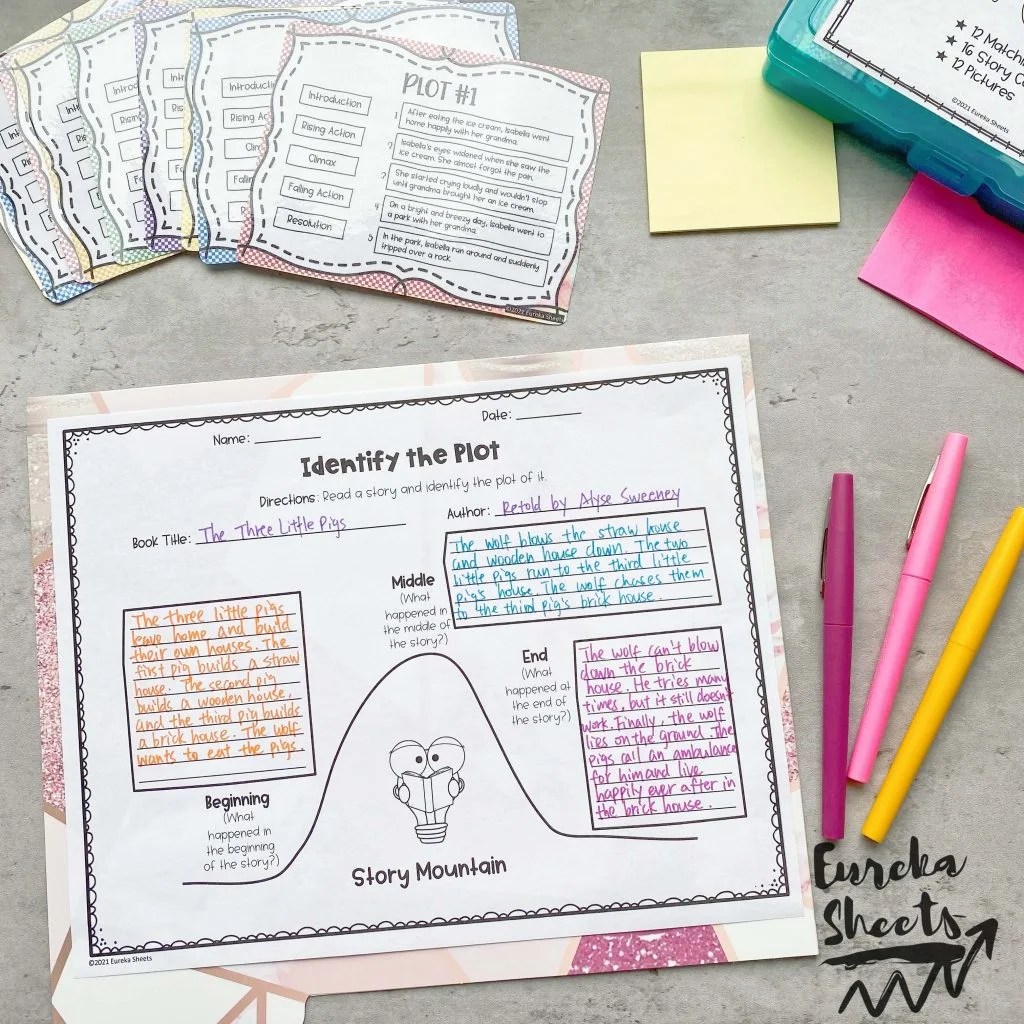 PLOT #1
Introduction
Rising Action
Climax
Falling Action
Resolution
1 After eating the ice cream, Isabella went
home happily with her grandma.
2 Isabella's eyes widened when she saw the
ice cream. She almost forgot the pain.
3 She started crying loudly and wouldn't stop
until grandma brought her an ice cream.
4 On a bright and breezy day, Isabella went to
a park with her grandma.
5 In the park, Isabella ran around and suddenly
tripped over a rock.
©2021 Eureka Sheets
★ 12 Matchi
★ 16 Story C
★ 12 Pictures
©2021 Eureka Sheets
Name:
Date:
Identify the Plot
Directions: Read a story and identify the plot of it.
Book Title: The Three Little Pigs
Author: Retold by Alyse Sweeney
The three little pigs
leave home and build
their own houses. The
first pig builds a straw
house. The second pig
builds a wooden house,
and the third pig builds
a brick house. The wolf
wants to eat the pigs.
Beginning
(What
happened in
the beginning
of the story?)
Middle
(What
happened in
the middle of
the story?)
The wolf blows the straw house
and wooden house down. The two
little pigs run to the third little
pig's house. The wolf chases them
to the third pig's brick house.
End
(What
happened at
the end of
the story?)
The wolf can't blow
down the brick
house. He tries many
times, but it still doesn't
work. Finally, the wolf
lies on the ground. The
pigs call an ambulance
for him and live
happily ever after in
the brick house.
Story Mountain
©2021 Eureka Sheets
Eureka
Sheets